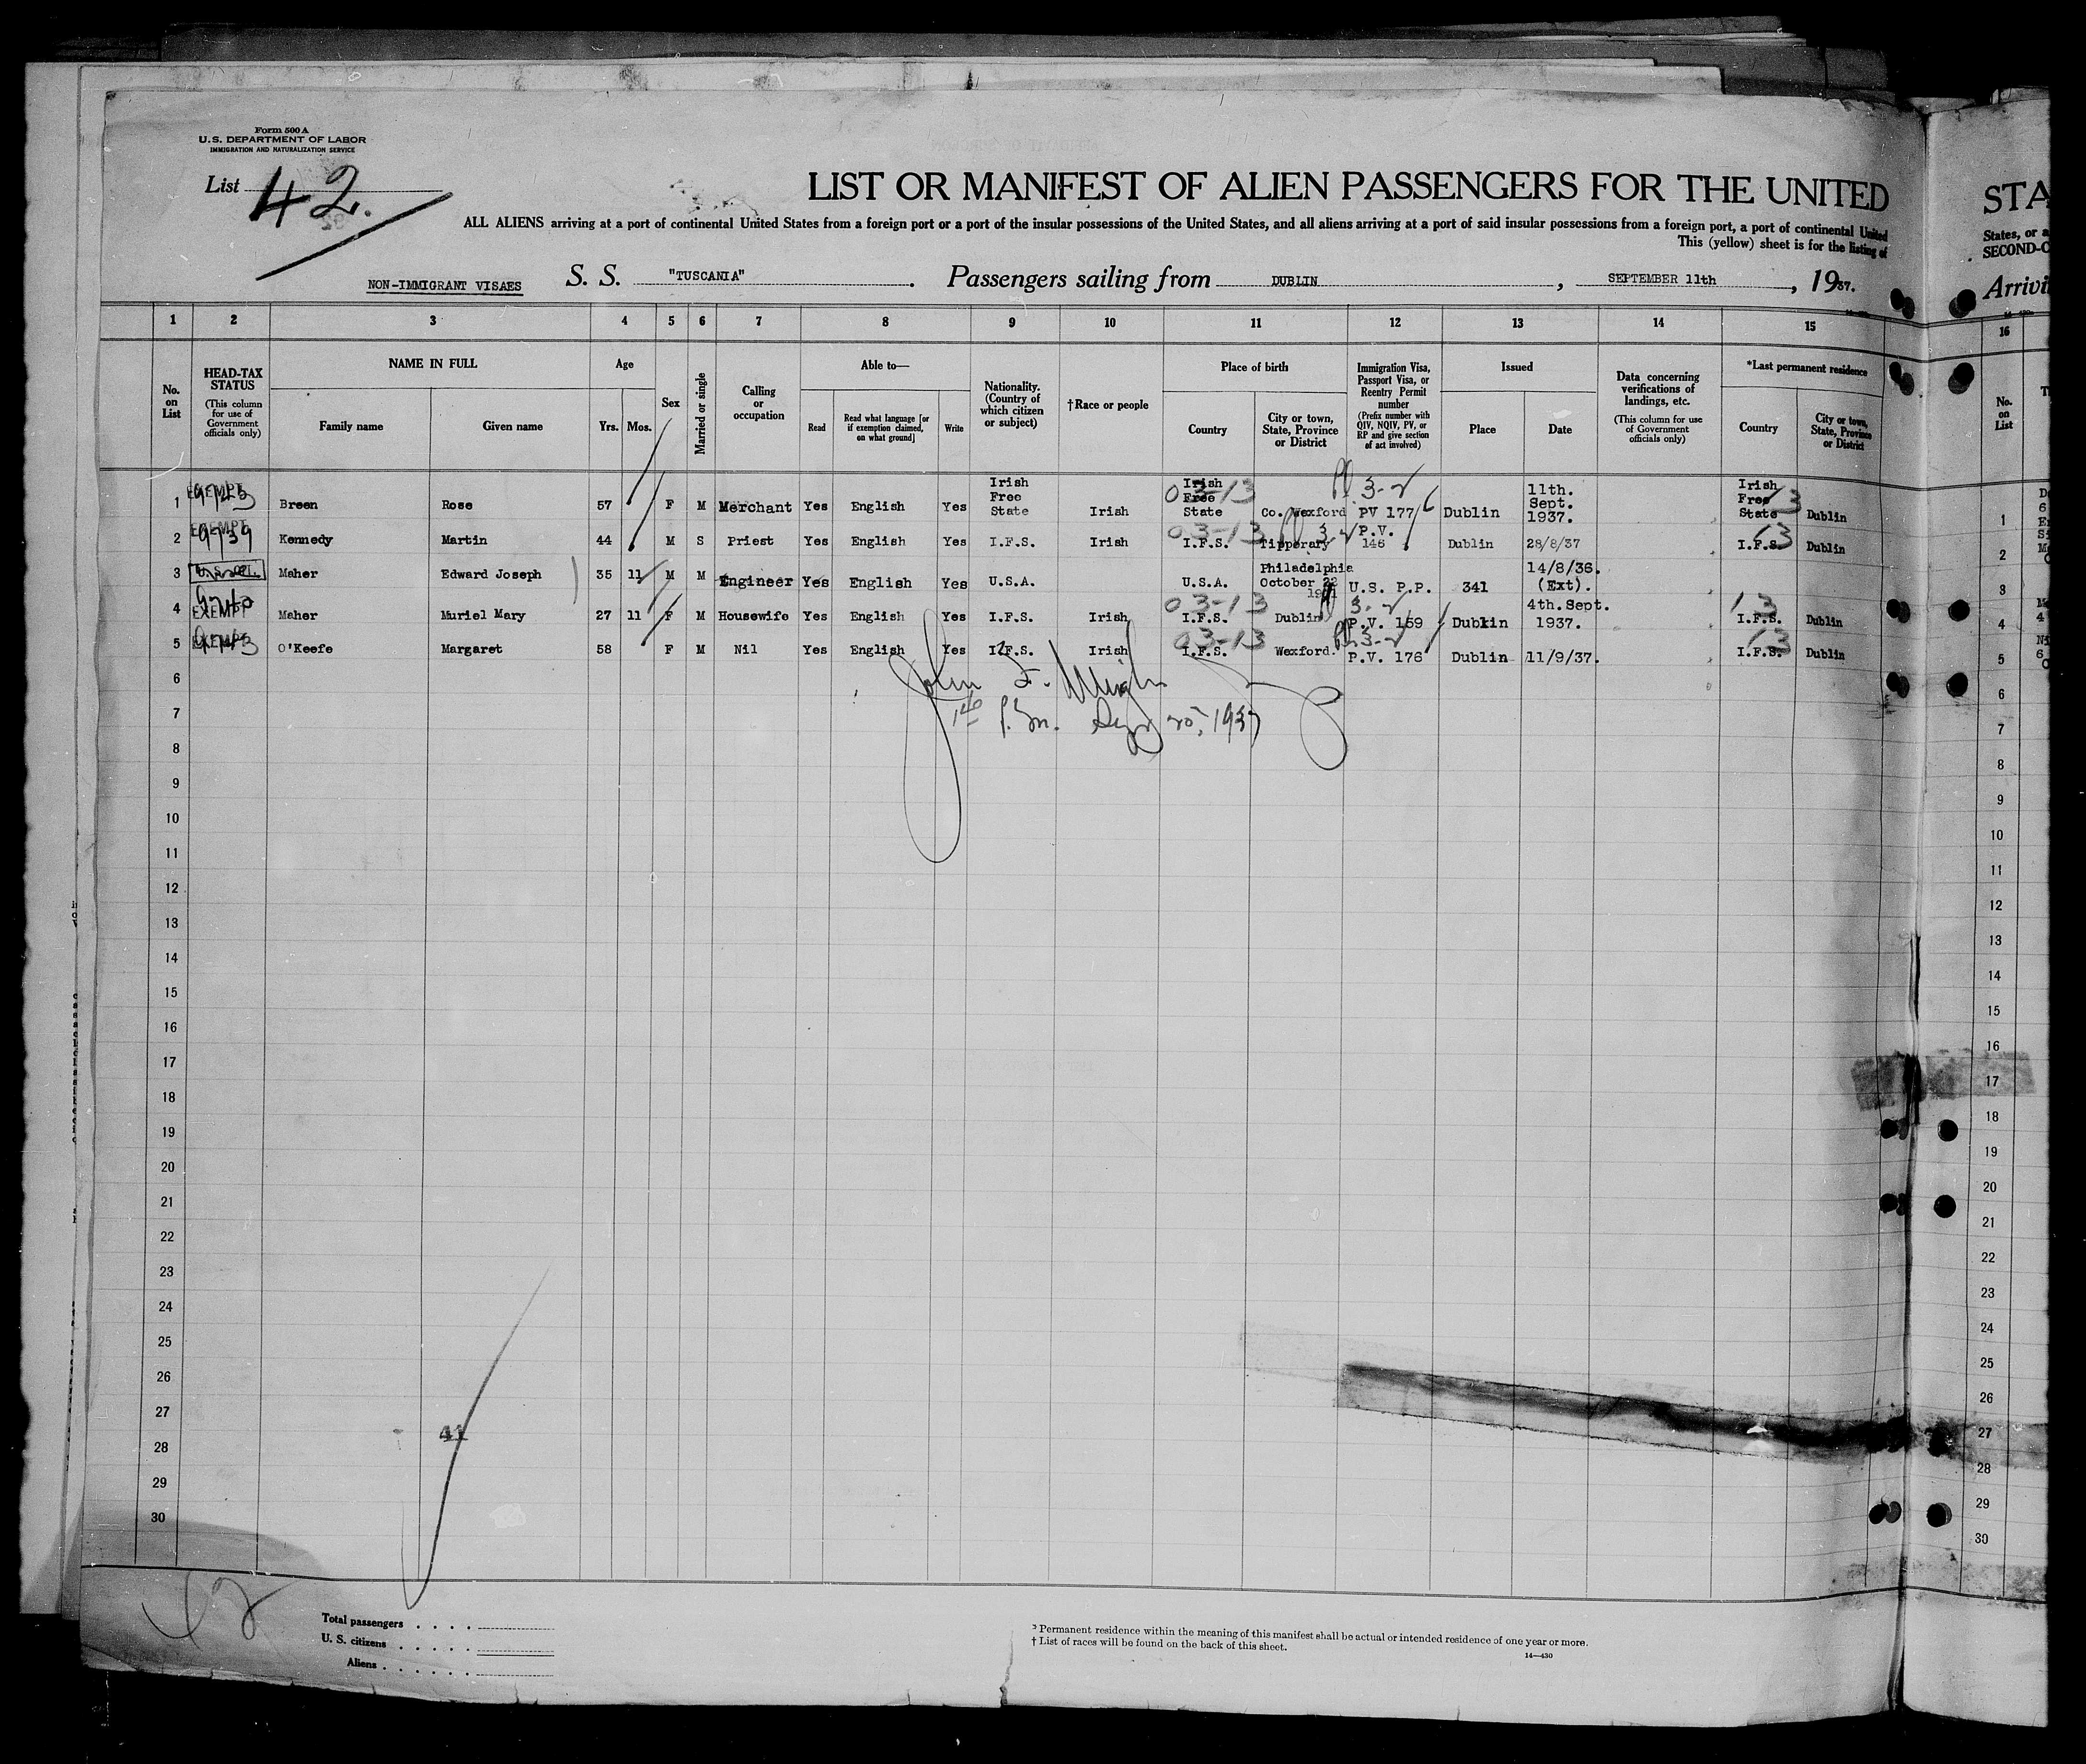 Form 500 A
U. S. DEPARTMENT OF LABOR
IMMIGRATION AND NATURALIZATION SERVICE
List 42.
LIST OR MANIFEST OF ALIEN PASSENGERS FOR THE UNITED
ALL ALIENS arriving at a port of continental United States from a foreign port or a port of the insular possessions of the United States, and all aliens arriving at a port of said insular possessions from a foreign port, a port of continental United
This (yellow) sheet is for the listing of
NON-IMMIGRANT VISAES S. S. "TUSCANIA". Passengers sailing from DUBLIN, SEPTEMBER 11th, 1937.
1 2 3 4 5 6 7 8 9 10 11 12 13 14 15
No. on List
HEAD-TAX STATUS
(This column for use of Government officials only)
NAME IN FULL
Family name Given name
Age
Yrs. Mos.
Sex
Married or single
Calling or occupation
Able to—
Read
Read what language [or if exemption claimed, on what ground]
Write
Nationality. (Country of which citizen or subject)
†Race or people
Place of birth
Country
City or town, State, Province or District
Immigration Visa, Passport Visa, or Reentry Permit number
(Prefix number with QIV, NQIV, PV, or RP and give section of act involved)
Issued
Place Date
Data concerning verifications of landings, etc.
(This column for use of Government officials only)
*Last permanent residence
Country
City or town, State, Province or District
1 EXEMPT Breen Rose 57 F M Merchant Yes English Yes Irish Free State Irish Irish Free State 03-13 Co. Wexford 3-2 PV 177 Dublin 11th. Sept. 1937. Irish Free State 13 Dublin
2 EXEMPT 9739 Kennedy Martin 44 M S Priest Yes English Yes I.F.S. Irish 03-13 I.F.S. Tipperary P.V. 146 Dublin 28/8/37 I.F.S. 13 Dublin
3 Maher Edward Joseph 35 11 M M Engineer Yes English Yes U.S.A. U.S.A. Philadelphia October 22 1901 U.S. P.P. 341 14/8/36. (Ext).
4 EXEMPT Maher Muriel Mary 27 11 F M Housewife Yes English Yes I.F.S. Irish 03-13 I.F.S. Dublin 3-2 P.V. 159 Dublin 4th.Sept. 1937. 13 I.F.S. Dublin
5 EXEMPT O'Keefe Margaret 58 F M Nil Yes English Yes I.F.S. Irish 03-13 I.F.S. Wexford. 3-2 P.V. 176 Dublin 11/9/37. 13 I.F.S. Dublin
6
John F.
7
1937
8
9
10
11
12
13
14
15
16
17
18
19
20
21
22
23
24
25
26
27
41
28
29
30
42
Total passengers
U. S. citizens
Aliens
* Permanent residence within the meaning of this manifest shall be actual or intended residence of one year or more.
† List of races will be found on the back of this sheet.
14—430
STA
States, or a
SECOND-C
Arrivi
16
No. on List
1
2
3
4
5
6
7
8
9
10
11
12
13
14
15
16
17
18
19
20
21
22
23
24
25
26
27
28
29
30